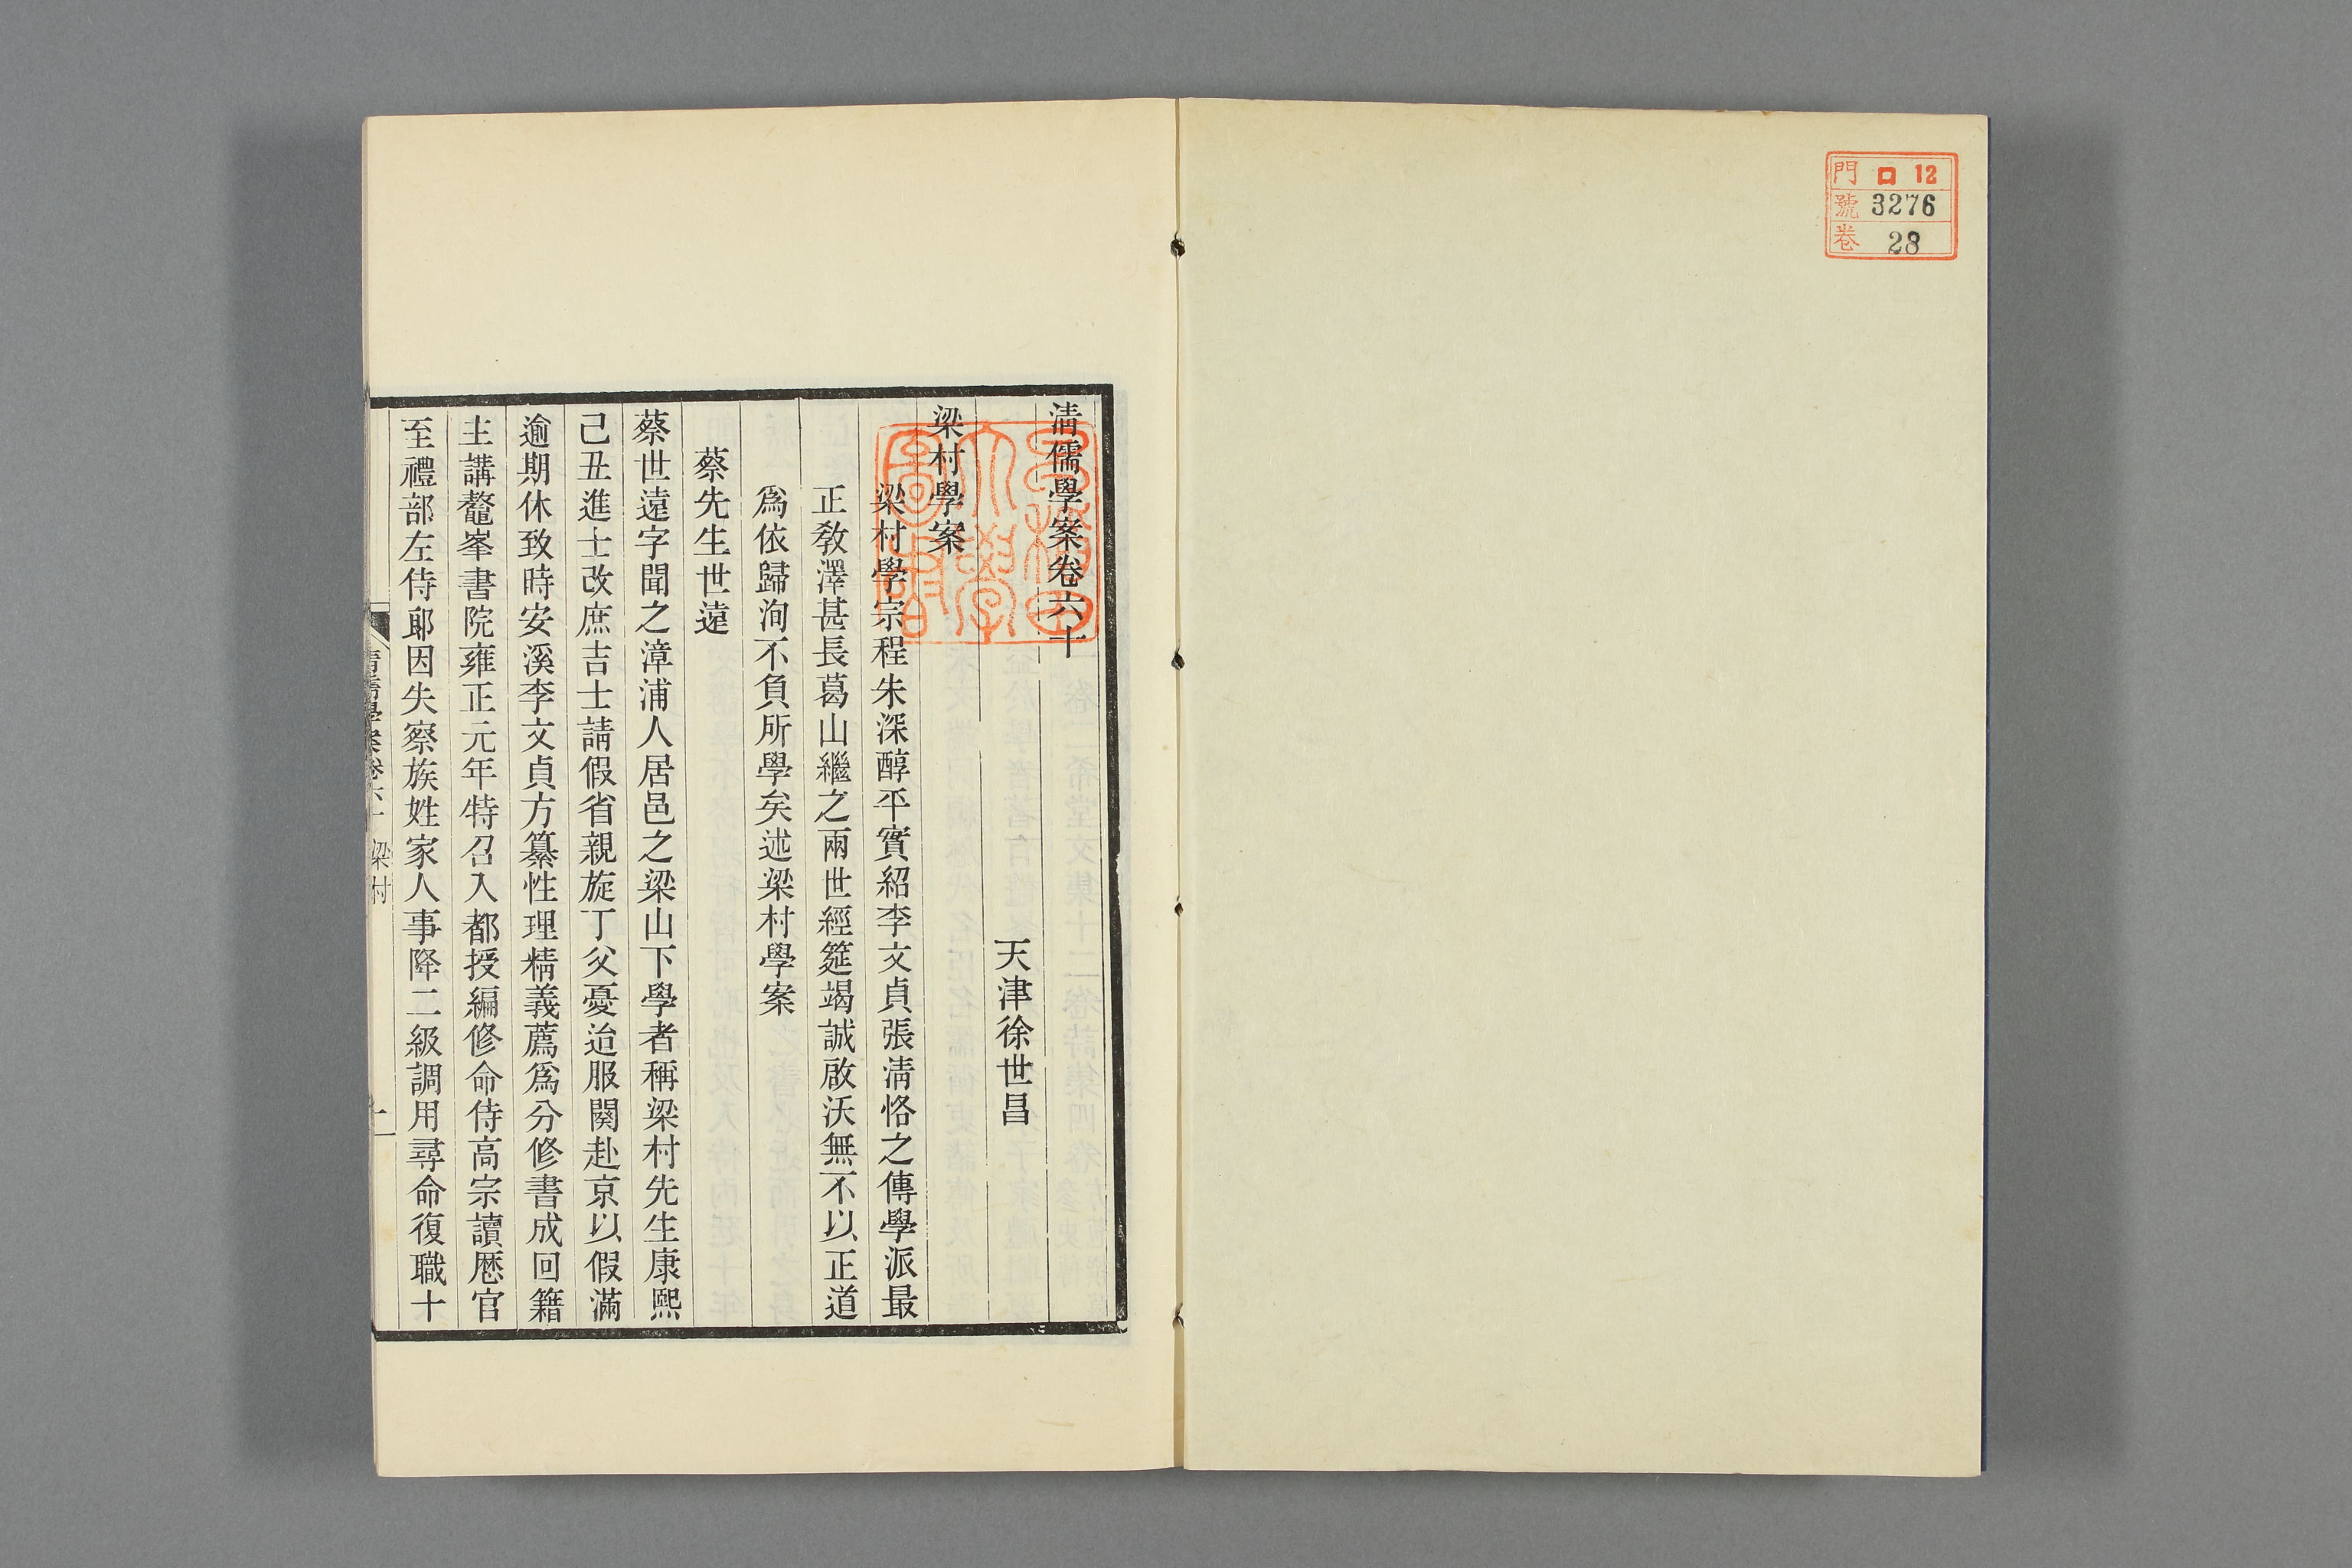 門 ロ 12
號 3276
卷 28
淸儒學案卷六十
天津徐世昌
梁村學案
梁村學宗程朱深醇平實紹李文貞張淸恪之傳學派最
正敎澤甚長葛山繼之兩世經筵竭誠啟沃無不以正道
爲依歸洵不負所學矣述梁村學案
蔡先生世遠
蔡世遠字聞之漳浦人居邑之梁山下學者稱梁村先生康熙
己丑進士改庶吉士請假省親旋丁父憂迨服闋赴京以假滿
逾期休致時安溪李文貞方纂性理精義薦爲分修書成回籍
主講鼇峯書院雍正元年特召入都授編修命侍高宗讀歷官
至禮部左侍郎因失察族姓家人事降二級調用尋命復職十
淸儒學案卷六十 梁村 一
早稻田大學圖書